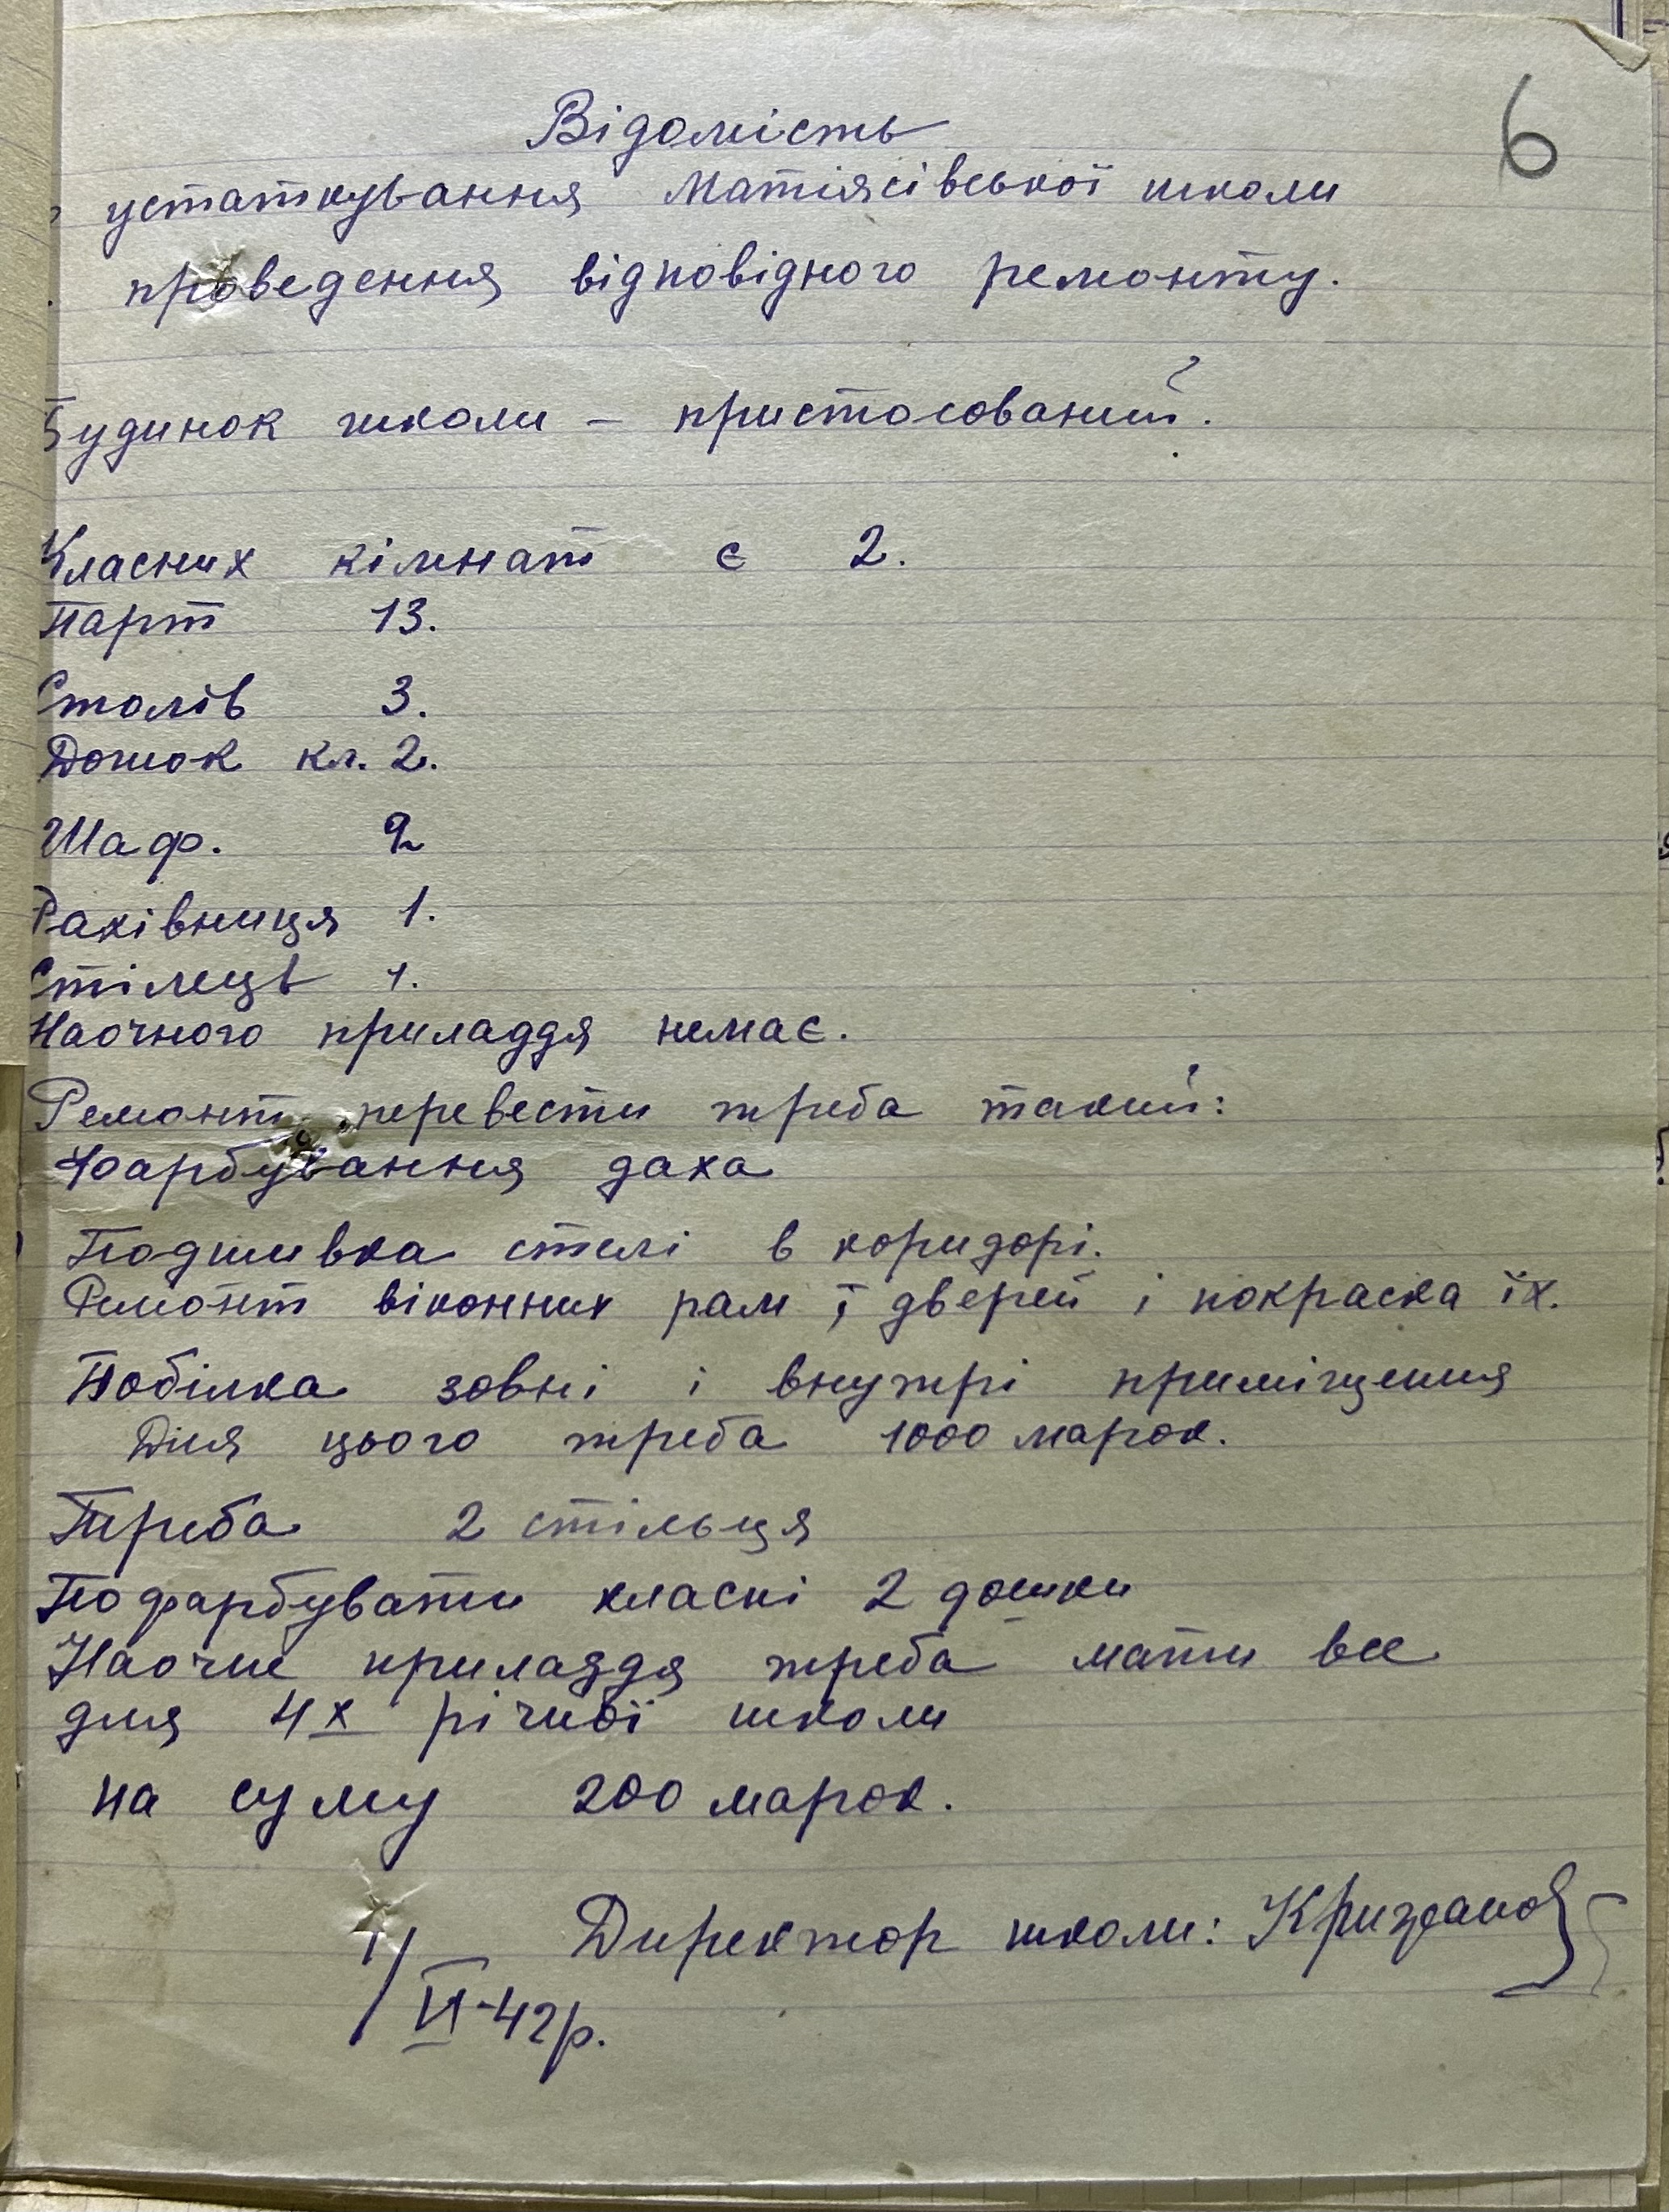 6
Відомість
устаткування Матіясівської школи
проведення відповідного ремонту.
Будинок школи – пристосований.
Класних кімнат є 2.
Парт 13.
Столів 3.
Дошок кл. 2.
Шаф. 2
Рахівниця 1.
Стілець 1.
Наочного приладдя немає.
Ремонт перевести треба такий:
Фарбування даха
Подшивка стелі в коридорі.
Ремонт віконних рам і дверей і покраска їх.
Побілка зовні і внутрі приміщення
Для цього треба 1000 марок.
Треба 2 стільця
Пофарбувати класні 2 дошки
Наочне приладдя треба мати все
для 4х річної школи
на суму 200 марок.
Директор школи:
1/VI-42р.